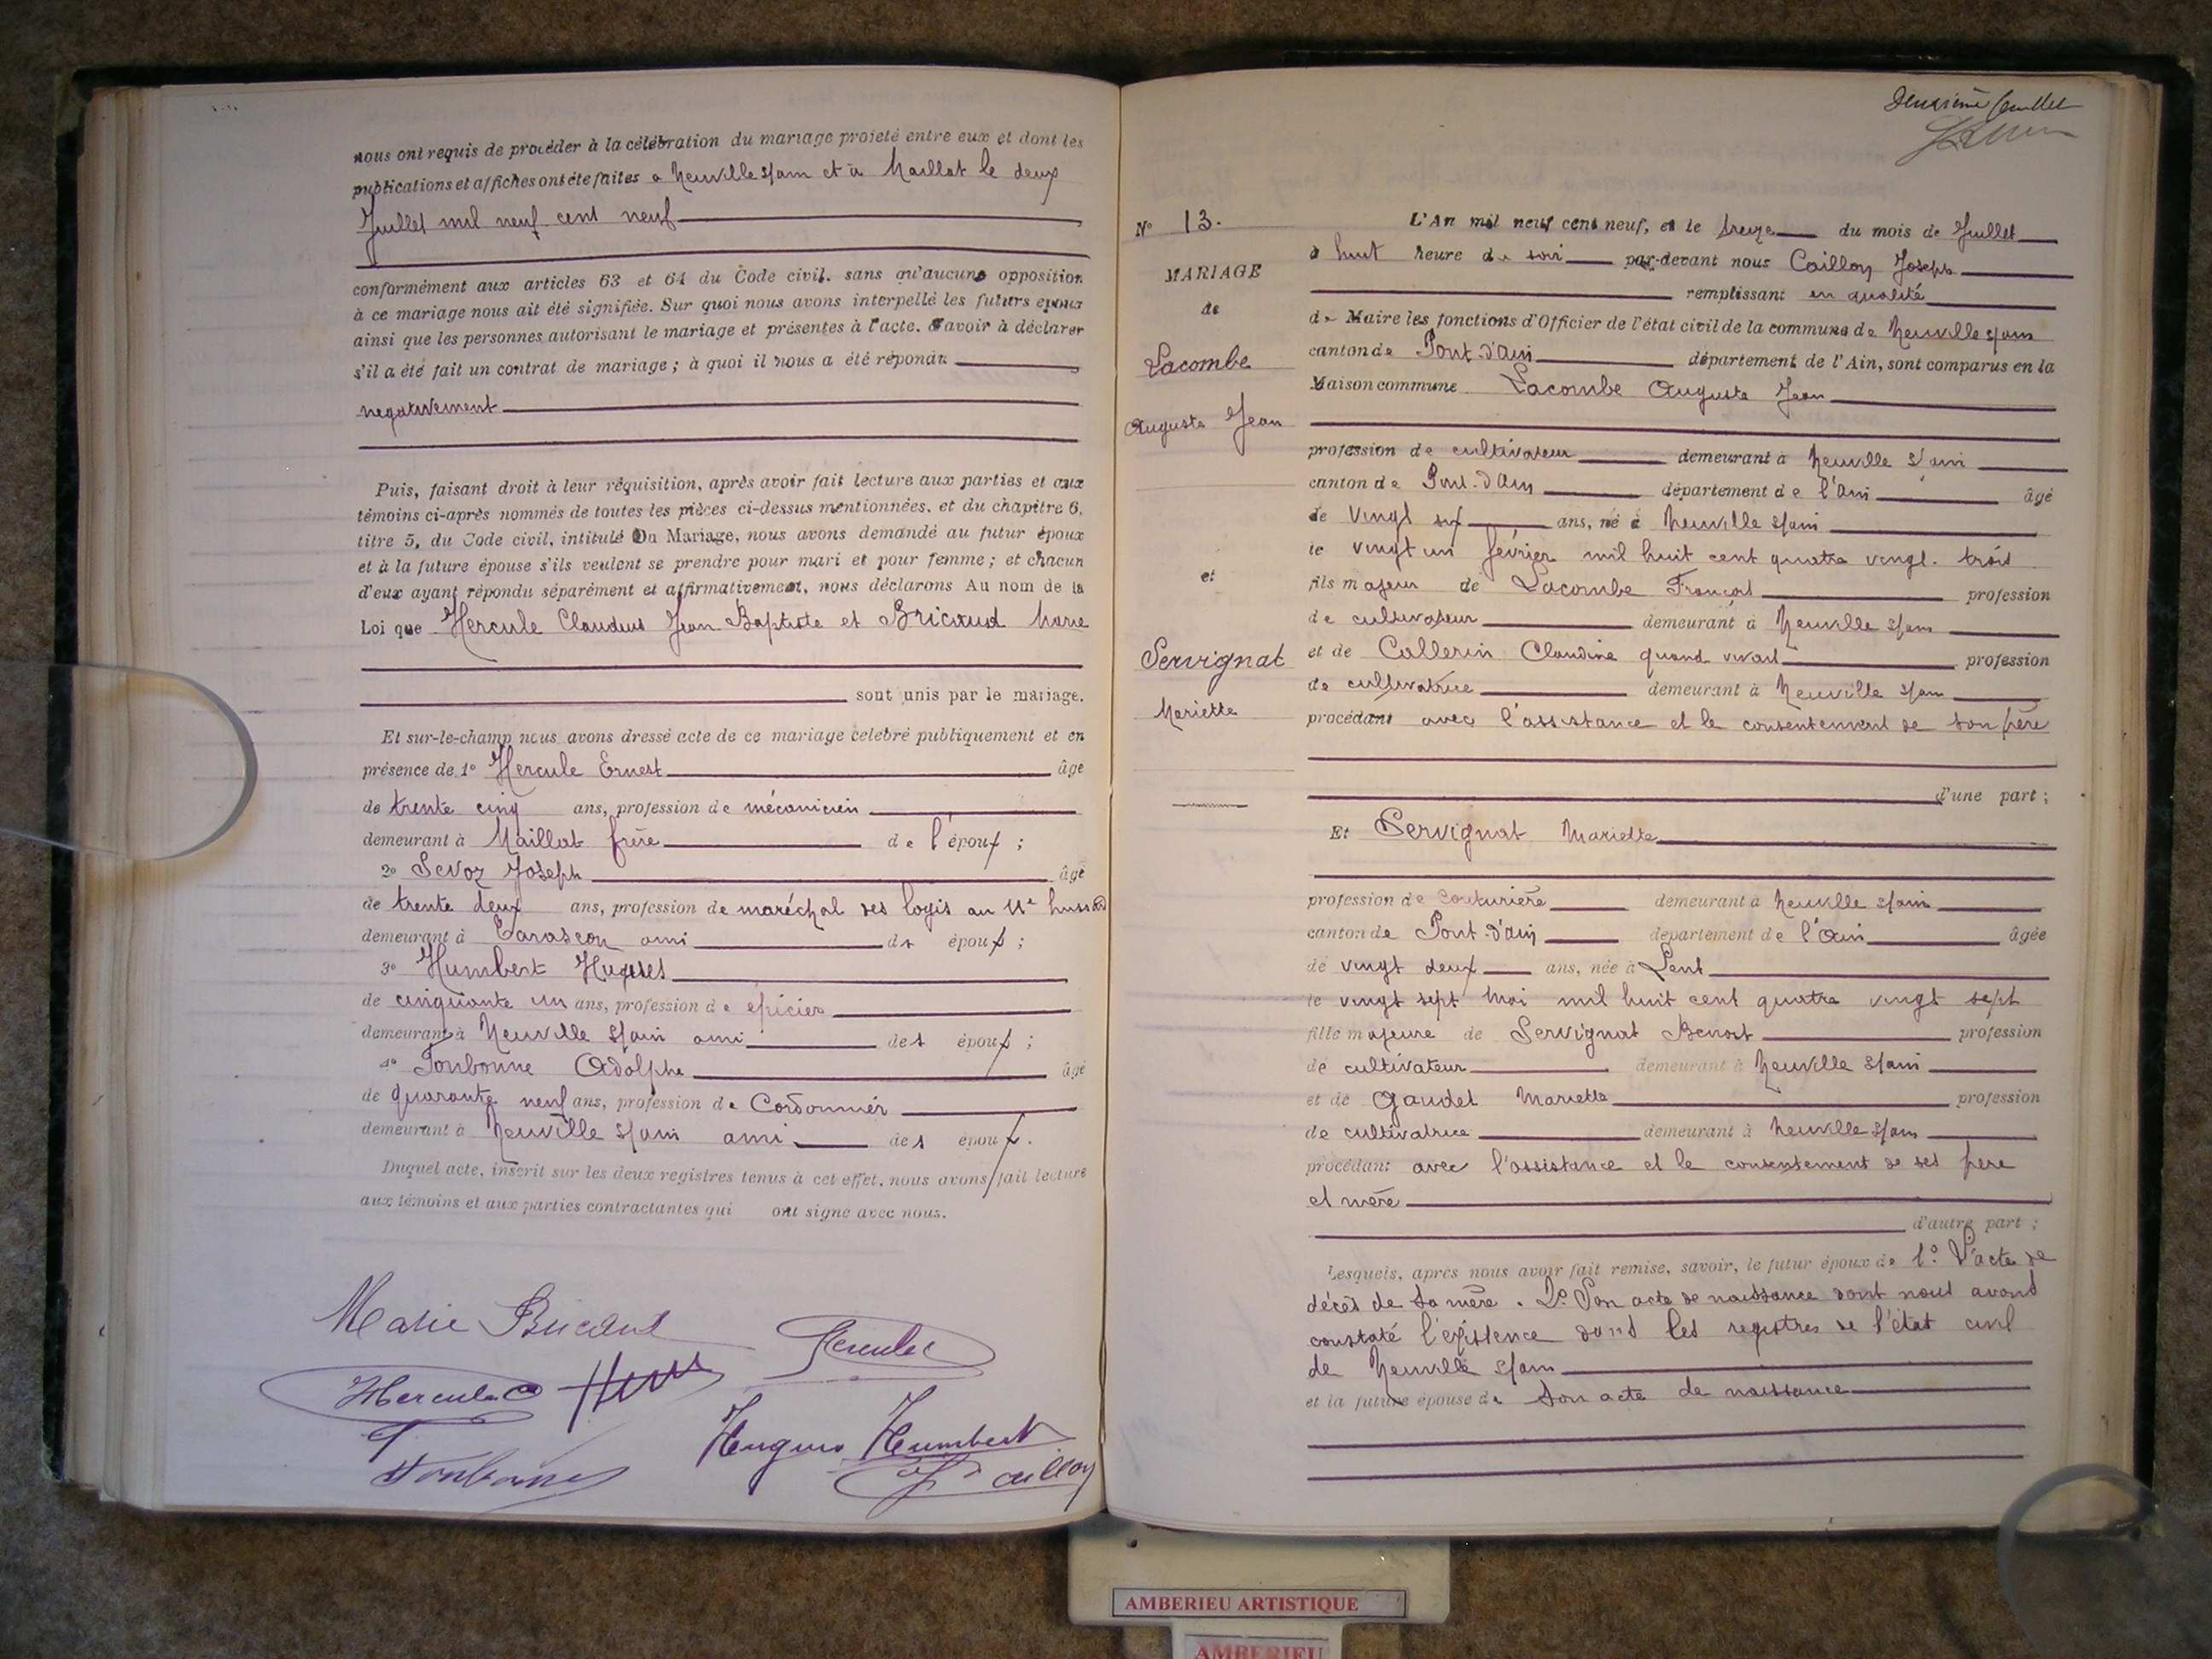 nous ont requis de procéder à la célébration du mariage projeté entre eux et dont les
publications et affiches ont été faites a Neuville s/ain et à Maillat le deux
Juillet mil neuf cent neuf
conformément aux articles 63 et 64 du Code civil. sans qu'aucune opposition
à ce mariage nous ait été signifiée. Sur quoi nous avons interpellé les futurs epoux
ainsi que les personnes autorisant le mariage et présentes à l'acte. Savoir à déclarer
s'il a été fait un contrat de mariage ; à quoi il nous a été répondu
negativement
Puis, faisant droit à leur réquisition, après avoir fait lecture aux parties et aux
témoins ci-après nommés de toutes les pièces ci-dessus mentionnées. et du chapitre 6,
titre 5, du Code civil, intitulé Du Mariage, nous avons demandé au futur époux
et à la future épouse s'ils veulent se prendre pour mari et pour femme ; et chacun
d'eux ayant répondu séparément et affirmativement, nous déclarons Au nom de la
Loi que Hercule Claudius Jean Baptiste et Bricaud Marie
sont unis par le mariage.
Et sur-le-champ nous avons dressé acte de ce mariage celebré publiquement et en
présence de 1o Hercule Ernest âgé
de trente cinq ans, profession de mécanicien
demeurant à Maillat frère de l'époux ;
2o Sevoz Joseph âgé
de trente deux ans, profession de maréchal des logis au 11e hussards
demeurant à Tarascon ami des époux ;
3o Humbert Hugues
de cinquante un ans, profession de épicier
demeurant à Neuville s/ain ami des époux ;
4o Tonbonne Adolphe âgé
de quarante neuf ans, profession de Cordonnier
demeurant à Neuville s/ain ami des époux.
Duquel acte, inscrit sur les deux registres tenus à cet effet. nous avons fait lecture
aux témoins et aux parties contractantes qui ont signé avec nous.
Marie Bricaud
Hercule
Hercule
Hugues Humbert
Tonbonne
J Caillon
Deuxième feuillet
No 13.
MARIAGE
de
Lacombe
Auguste Jean
et
Servignat
Mariette
L'An mil neuf cent neuf, et le treize du mois de Juillet
à huit heure du soir par-devant nous Caillon Joseph
remplissant en qualité
de Maire les fonctions d'Officier de l'état civil de la commune de Neuville s/ain
canton de Pont-d'Ain département de l'Ain, sont comparus en la
Maison commune Lacombe Auguste Jean
profession de cultivateur demeurant à Neuville s/ain
canton de Pont-d'Ain département de l'Ain âgé
de Vingt six ans, né à Neuville s/ain
le vingt un février mil huit cent quatre vingt-trois
fils majeur de Lacombe François profession
de cultivateur demeurant à Neuville s/ain
et de Collerin Claudine quand vivait profession
de cultivatrice demeurant à Neuville s/ain
procédant avec l'assistance et le consentement de son père
d'une part ;
Et Servignat Mariette
profession de Couturière demeurant à Neuville s/ain
canton de Pont-d'Ain departement de l'Ain âgée
de vingt deux ans, née à Lent
le vingt sept Mai mil huit cent quatre vingt sept
fille majeure de Servignat Benoit profession
de cultivateur demeurant à Neuville s/ain
et de Gaudet Mariette profession
de cultivatrice demeurant à Neuville s/ain
procédant avec l'assistance et le consentement de ses père
et mère
d'autre part ;
Lesquels, après nous avoir fait remise, savoir, le futur époux de 1o. L'acte de
décès de sa mère. 2o Son acte de naissance dont nous avons
constaté l'existence dans les registres de l'état civil
de Neuville s/ain
et la future épouse de Son acte de naissance
AMBERIEU ARTISTIQUE
AMBERIEU